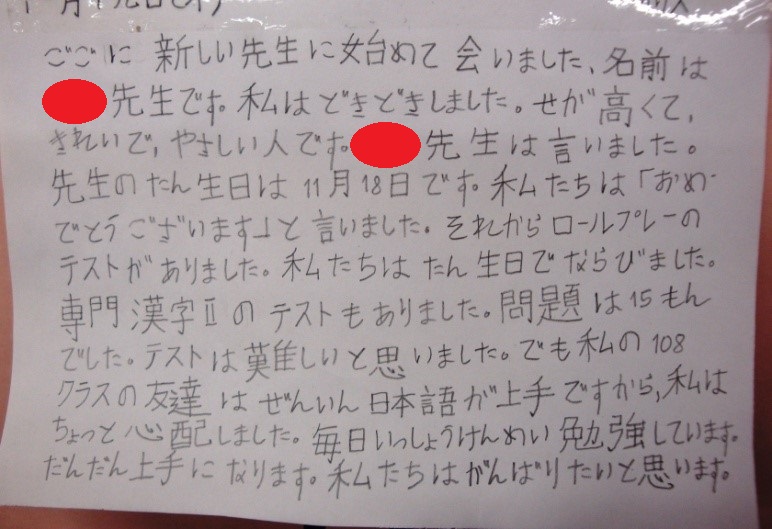 ごごに 新しい先生に始めて 会いました、名前は
先生です。私は どきどきしました。せが 高くて、
きれいで、やさしい人です。先生は言いました。
先生のたん生日は 11月18日です。私たちは「おめ
でとうございます」と 言いました。それから ロールプレーの
テストが ありました。私たちは たん生日で ならびました。
専門漢字Ⅱの テストも ありました。問題は 15もん
でした。テストは 難しいと 思いました。でも 私の 108
クラスの 友達は ぜんいん 日本語が 上手ですから、私は
ちょっと 心配しました。毎日いっしょうけんめい 勉強しています。
だんだん上手に なります。私たちは がんばりたいと 思います。